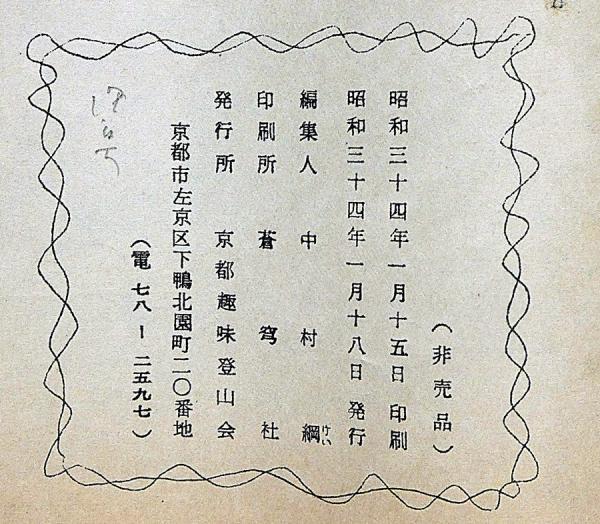 （非売品）
昭和三十四年一月十五日 印刷
昭和三十四年一月十八日 発行
編集人 中村綱
けい
印刷所 蒼穹社
発行所 京都趣味登山会
京都市左京区下鴨北園町二〇番地
（電 七八ー二五九七）